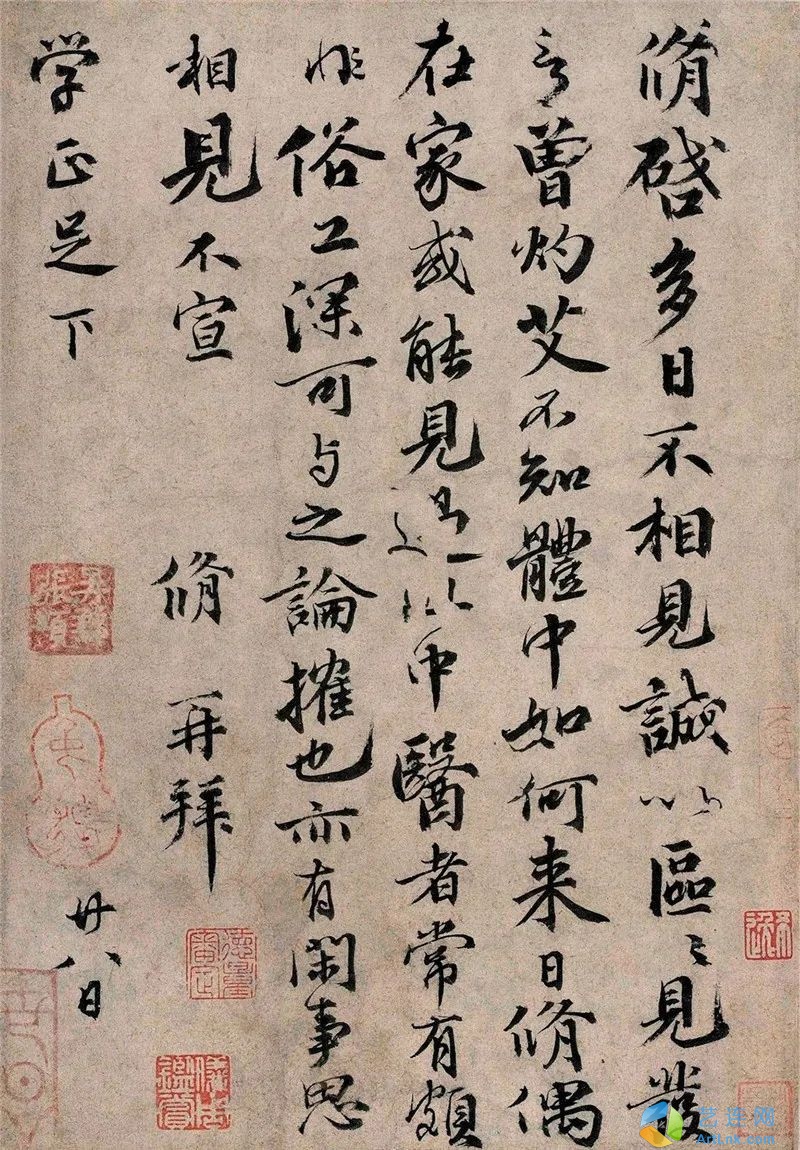 脩啓多日不相見誠以區〻見發
言曾灼艾不知體中如何来日脩偶
在家或能見過此中醫者常有頗
非俗工深可与之論搉也亦有閑事思
相見不宣 脩再拜
学正足下 廿八日
德量審定